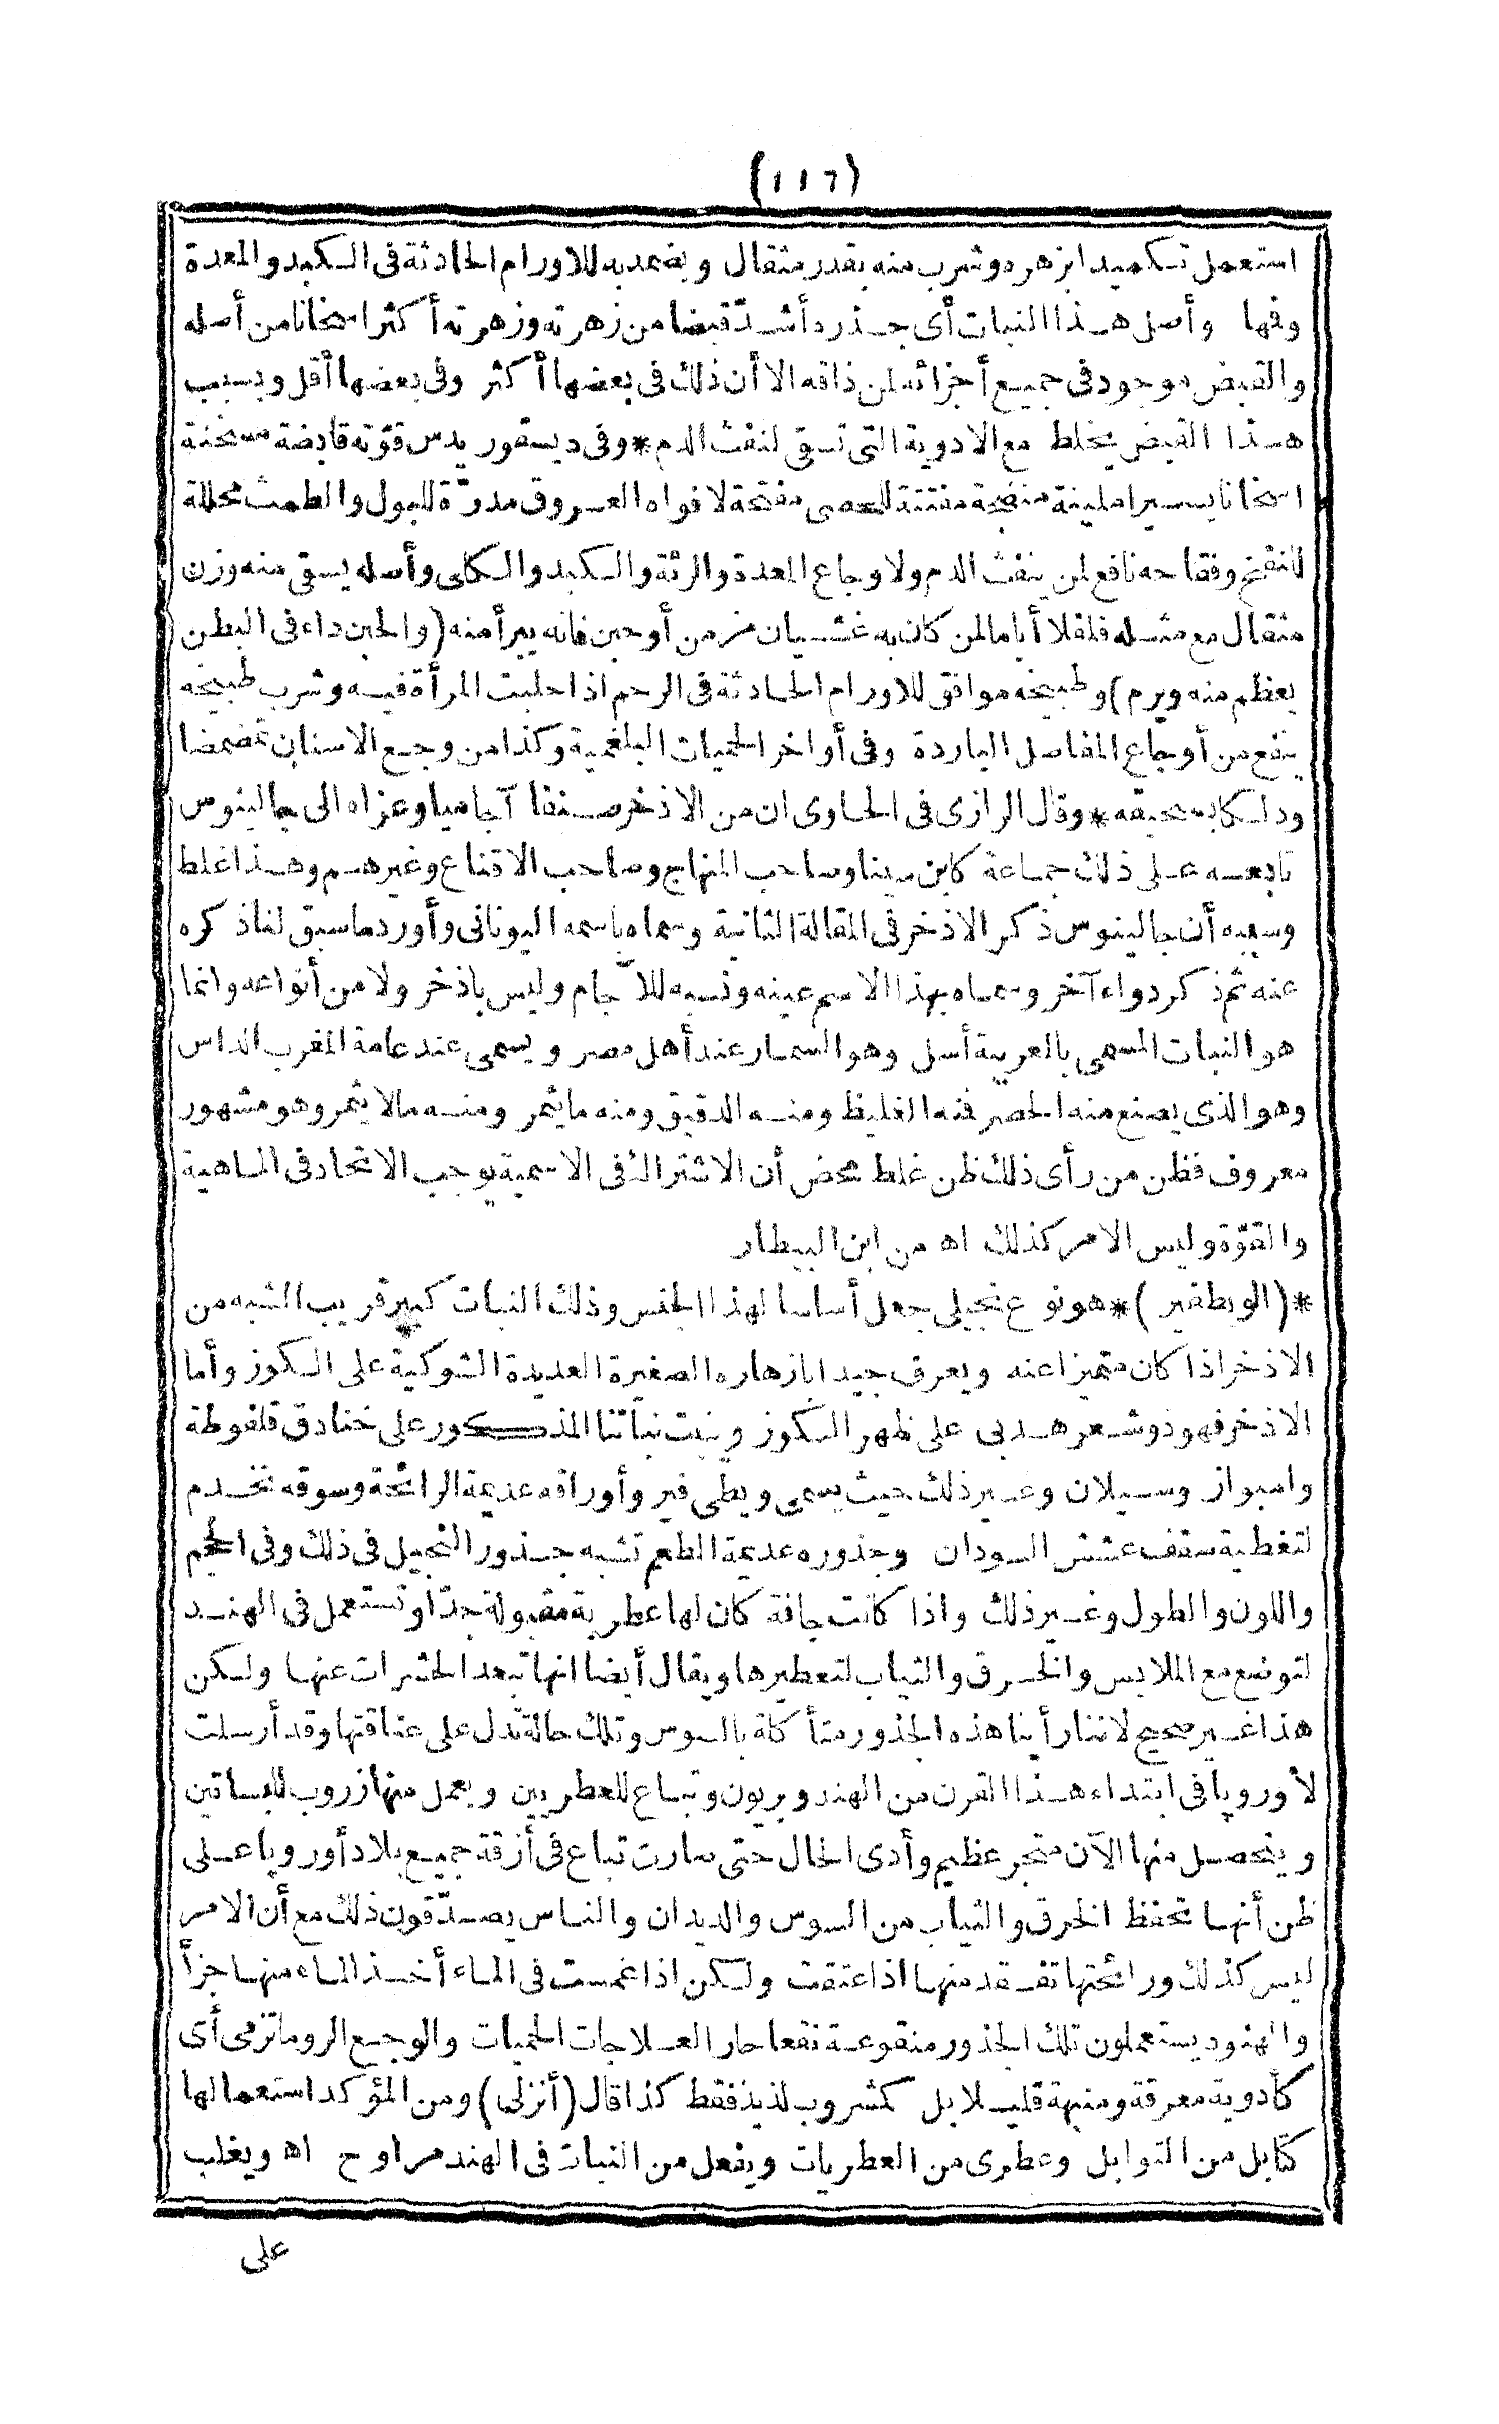 (١١٦)
استعمل تكميدا بزهره وشرب منه بقدر مثقال ويضمد به للاورام الحادثة فى الكبد والمعدة
وفمها وأصل هذا النبات أى جذره أشدّ قبضا من زهرته وزهرته أكثر اسخانا من أصله
والقبض موجود فى جميع أجزائه لمن ذاقه الا أن ذلك فى بعضها أكثر وفى بعضها أقل وبسبب
هذا القبض يخلط مع الادوية التى تسقى لنفث الدم * وفى ديسقوريدس قوّته قابضة مسخنة
اسخانا يسيرا ملينة منضجة مفتتة للحصى مفتحة لافواه العروق مدرّة للبول والطمث محللة
للنفخ وفقاحه نافع لمن ينفث الدم ولاوجاع المعدة والرئة والكبد والكلى وأصله يسقى منه وزن
مثقال مع مثله فلفلا أياما لمن كان به غشيان مزمن أو حبن فانه يبرأ منه (والحبن داء فى البطن
يعظم منه ويرم) وطبيخه موافق للاورام الحادثة فى الرحم اذا جلست المرأة فيه وشرب طبيخه
ينفع من أوجاع المفاصل الباردة وفى أواخر الحميات البلغمية وكذا من وجع الاسنان تمضمضا
ودلكا بسحيقه * وقال الرازى فى الحاوى ان من الاذخر صنفا آجاميا وعزاه الى جالينوس
تابعه على ذلك جماعة كابن سينا وصاحب المنهاج وصاحب الاقناع وغيرهم وهذا غلط
وسببه أن جالينوس ذكر الاذخر فى المقالة الثانية وسماه باسمه اليونانى وأورد ما سبق لنا ذكره
عنه ثم ذكر دواء آخر وسماه بهذا الاسم عينه ونسبه للآجام وليس باذخر ولا من أنواعه وانما
هو النبات المسمى بالعربية أسل وهو السمار عند أهل مصر ويسمى عند عامة المغرب الداس
وهو الذى يصنع منه الحصر فمنه الغليظ ومنه الدقيق ومنه ما يثمر ومنه ما لا يثمر وهو مشهور
معروف فظن من رأى ذلك ظن غلط محض أن الاشتراك فى الاسمية يوجب الاتحاد فى الماهية
والقوّة وليس الامر كذلك اه من ابن البيطار
* (الويطفير) * هو نوع نجيلى جعل أساسا لهذا الجنس وذلك النبات كبير قريب الشبه من
الاذخر اذا كان متميزا عنه ويعرف جيدا بازهاره الصغيرة العديدة الشوكية على الكوز وأما
الاذخر فهو ذو شعر هدبى على ظهر الكوز وينبت نباتنا المذكور على خنادق قلفوطة
وامبواز وسيلان وغير ذلك حيث يسمى ويطى فير وأوراقه عديمة الرائحة وسوقه تخدم
لتغطية سقف عشش السودان وجذوره عديمة الطعم تشبه جذور النجيل فى ذلك وفى الحجم
واللون والطول وغير ذلك واذا كانت جافة كان لها عطرية مقبولة جدّا وتستعمل فى الهند
لتوضع مع الملابس والخرق والثياب لتعطيرها ويقال أيضا انها تبعد الحشرات عنها ولكن
هذا غير صحيح لاننا رأينا هذه الجذور متأكلة بالسوس وتلك حالة تدل على عتاقتها وقد أرسلت
لأوروپا فى ابتداء هذا القرن من الهند وبربون وتباع للعطريين ويعمل منها زروب للبساتين
ويتحصل منها الآن متجر عظيم وأدى الحال حتى صارت تباع فى أزقة جميع بلاد أوروپا على
ظن أنها تحفظ الخرق والثياب من السوس والديدان والناس يصدّقون ذلك مع أن الامر
ليس كذلك ورائحتها تفقد منها اذا عتقت ولكن اذا غمست فى الماء أخذ الماء منها جزأ
والهنود يستعملون تلك الجذور منقوعة نقعا حارا لعلاجات الحميات والوجع الروماتزمى أى
كأدوية معرقة ومنبهة قليلا بل كمشروب لذيذ فقط كذا قال (أنزلى) ومن المؤكد استعمالها
كتابل من التوابل وعطرى من العطريات ويفعل من النبات فى الهند مراوح اه ويغلب
على